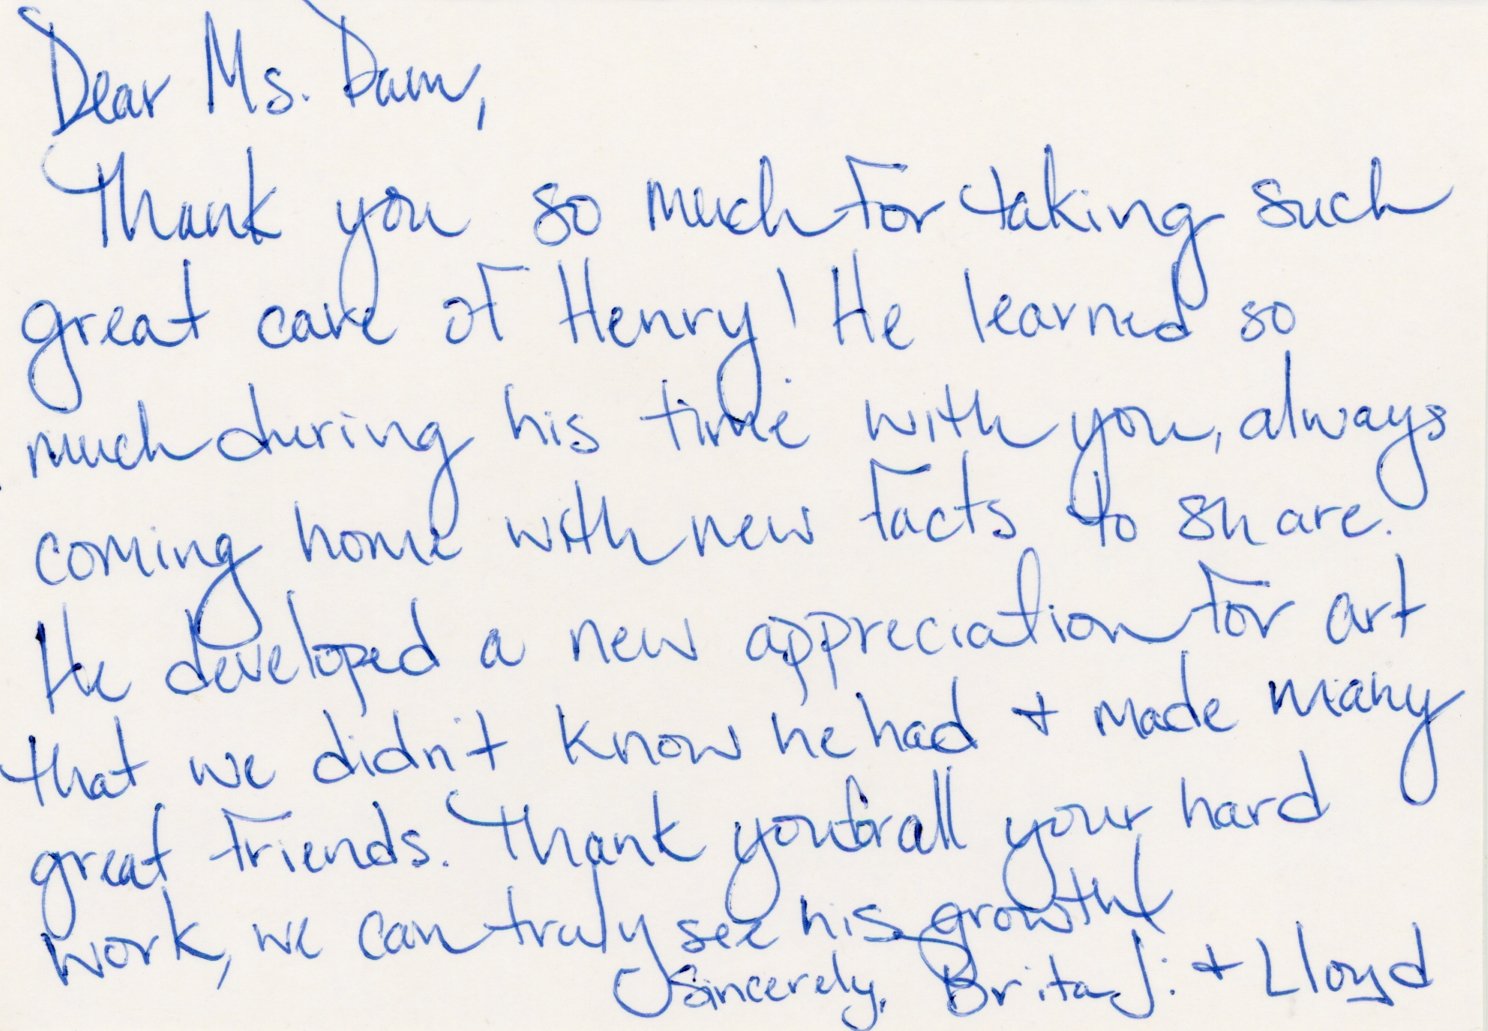 Dear Ms. Dam,
Thank you so much for taking such
great care of Henry! He learned so
much during his time with you, always
coming home with new facts to share.
He developed a new appreciation for art
that we didn't know he had + made many
great friends. Thank you for all your hard
work, we can truly see his growth!
Sincerely, Brita J. + Lloyd